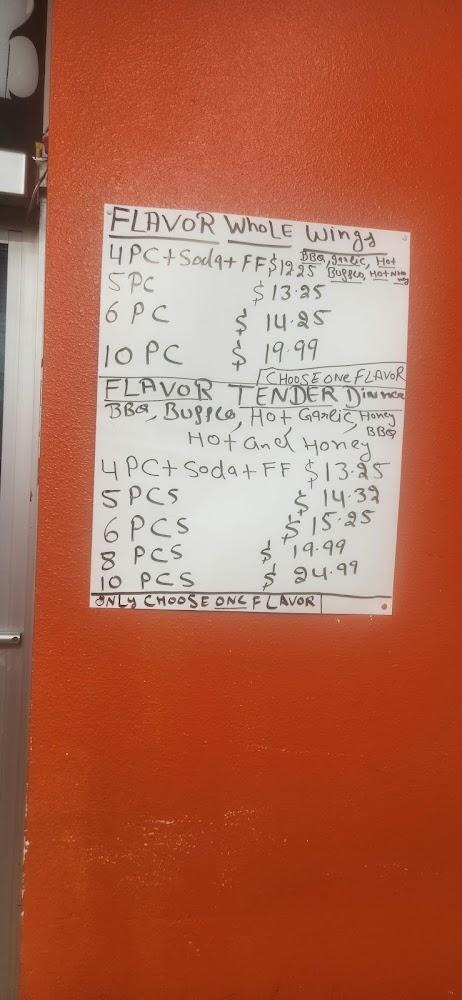 FLAVOR WHOLE Wings
4 PC + Soda + FF $12.25 BBQ, garlic, Hot
Bufflo, Hot
5 PC $ 13.25
6 PC $ 14.25
10 PC $ 19.99
CHOOSE ONE FLAVOR
FLAVOR TENDER Dinner
BBQ, Bufflo, Hot, Garlic, Honey
BBQ
Hot and Honey
4 PC + Soda + FF $13.25
5 PCS $ 14.32
6 PCS $ 15.25
8 PCS $ 19.99
10 PCS $ 24.99
ONLY CHOOSE ONE FLAVOR